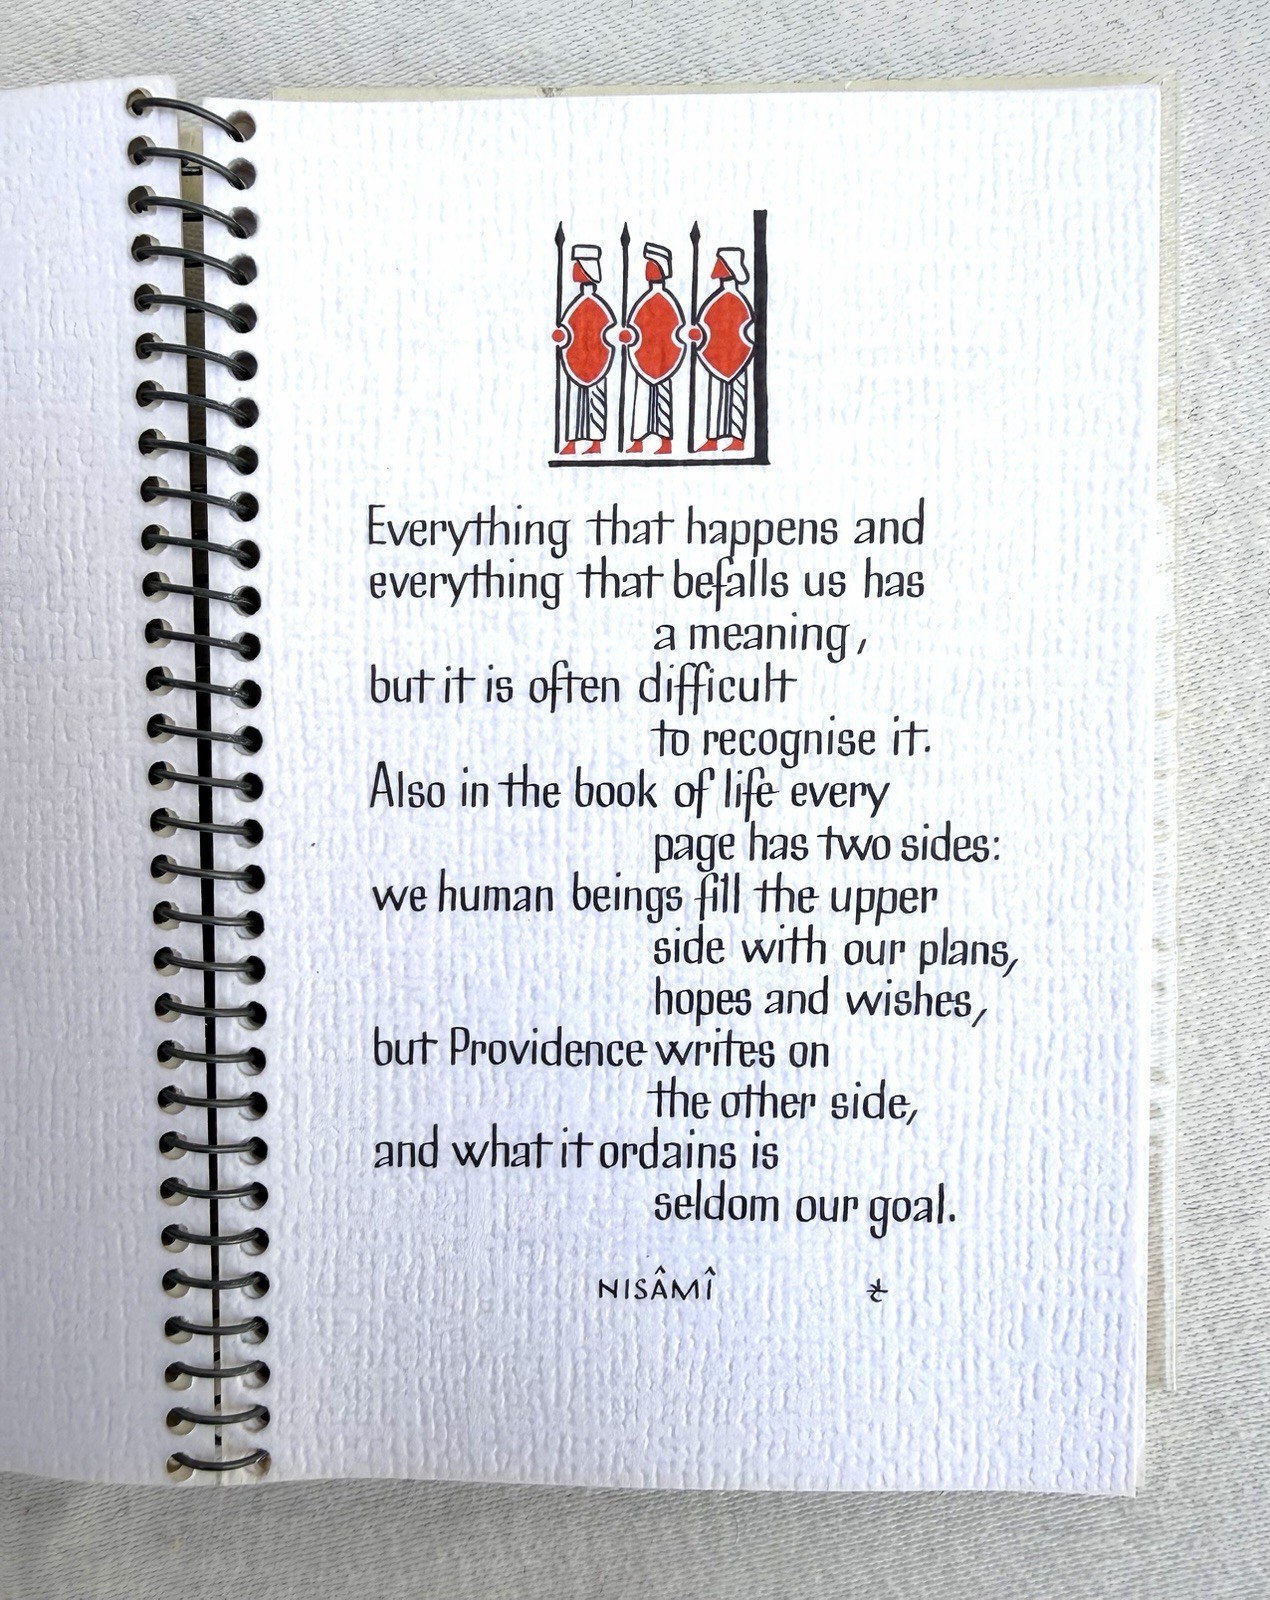 Everything that happens and
everything that befalls us has
a meaning,
but it is often difficult
to recognise it.
Also in the book of life every
page has two sides:
we human beings fill the upper
side with our plans,
hopes and wishes,
but Providence writes on
the other side,
and what it ordains is
seldom our goal.
NISÂMÎ